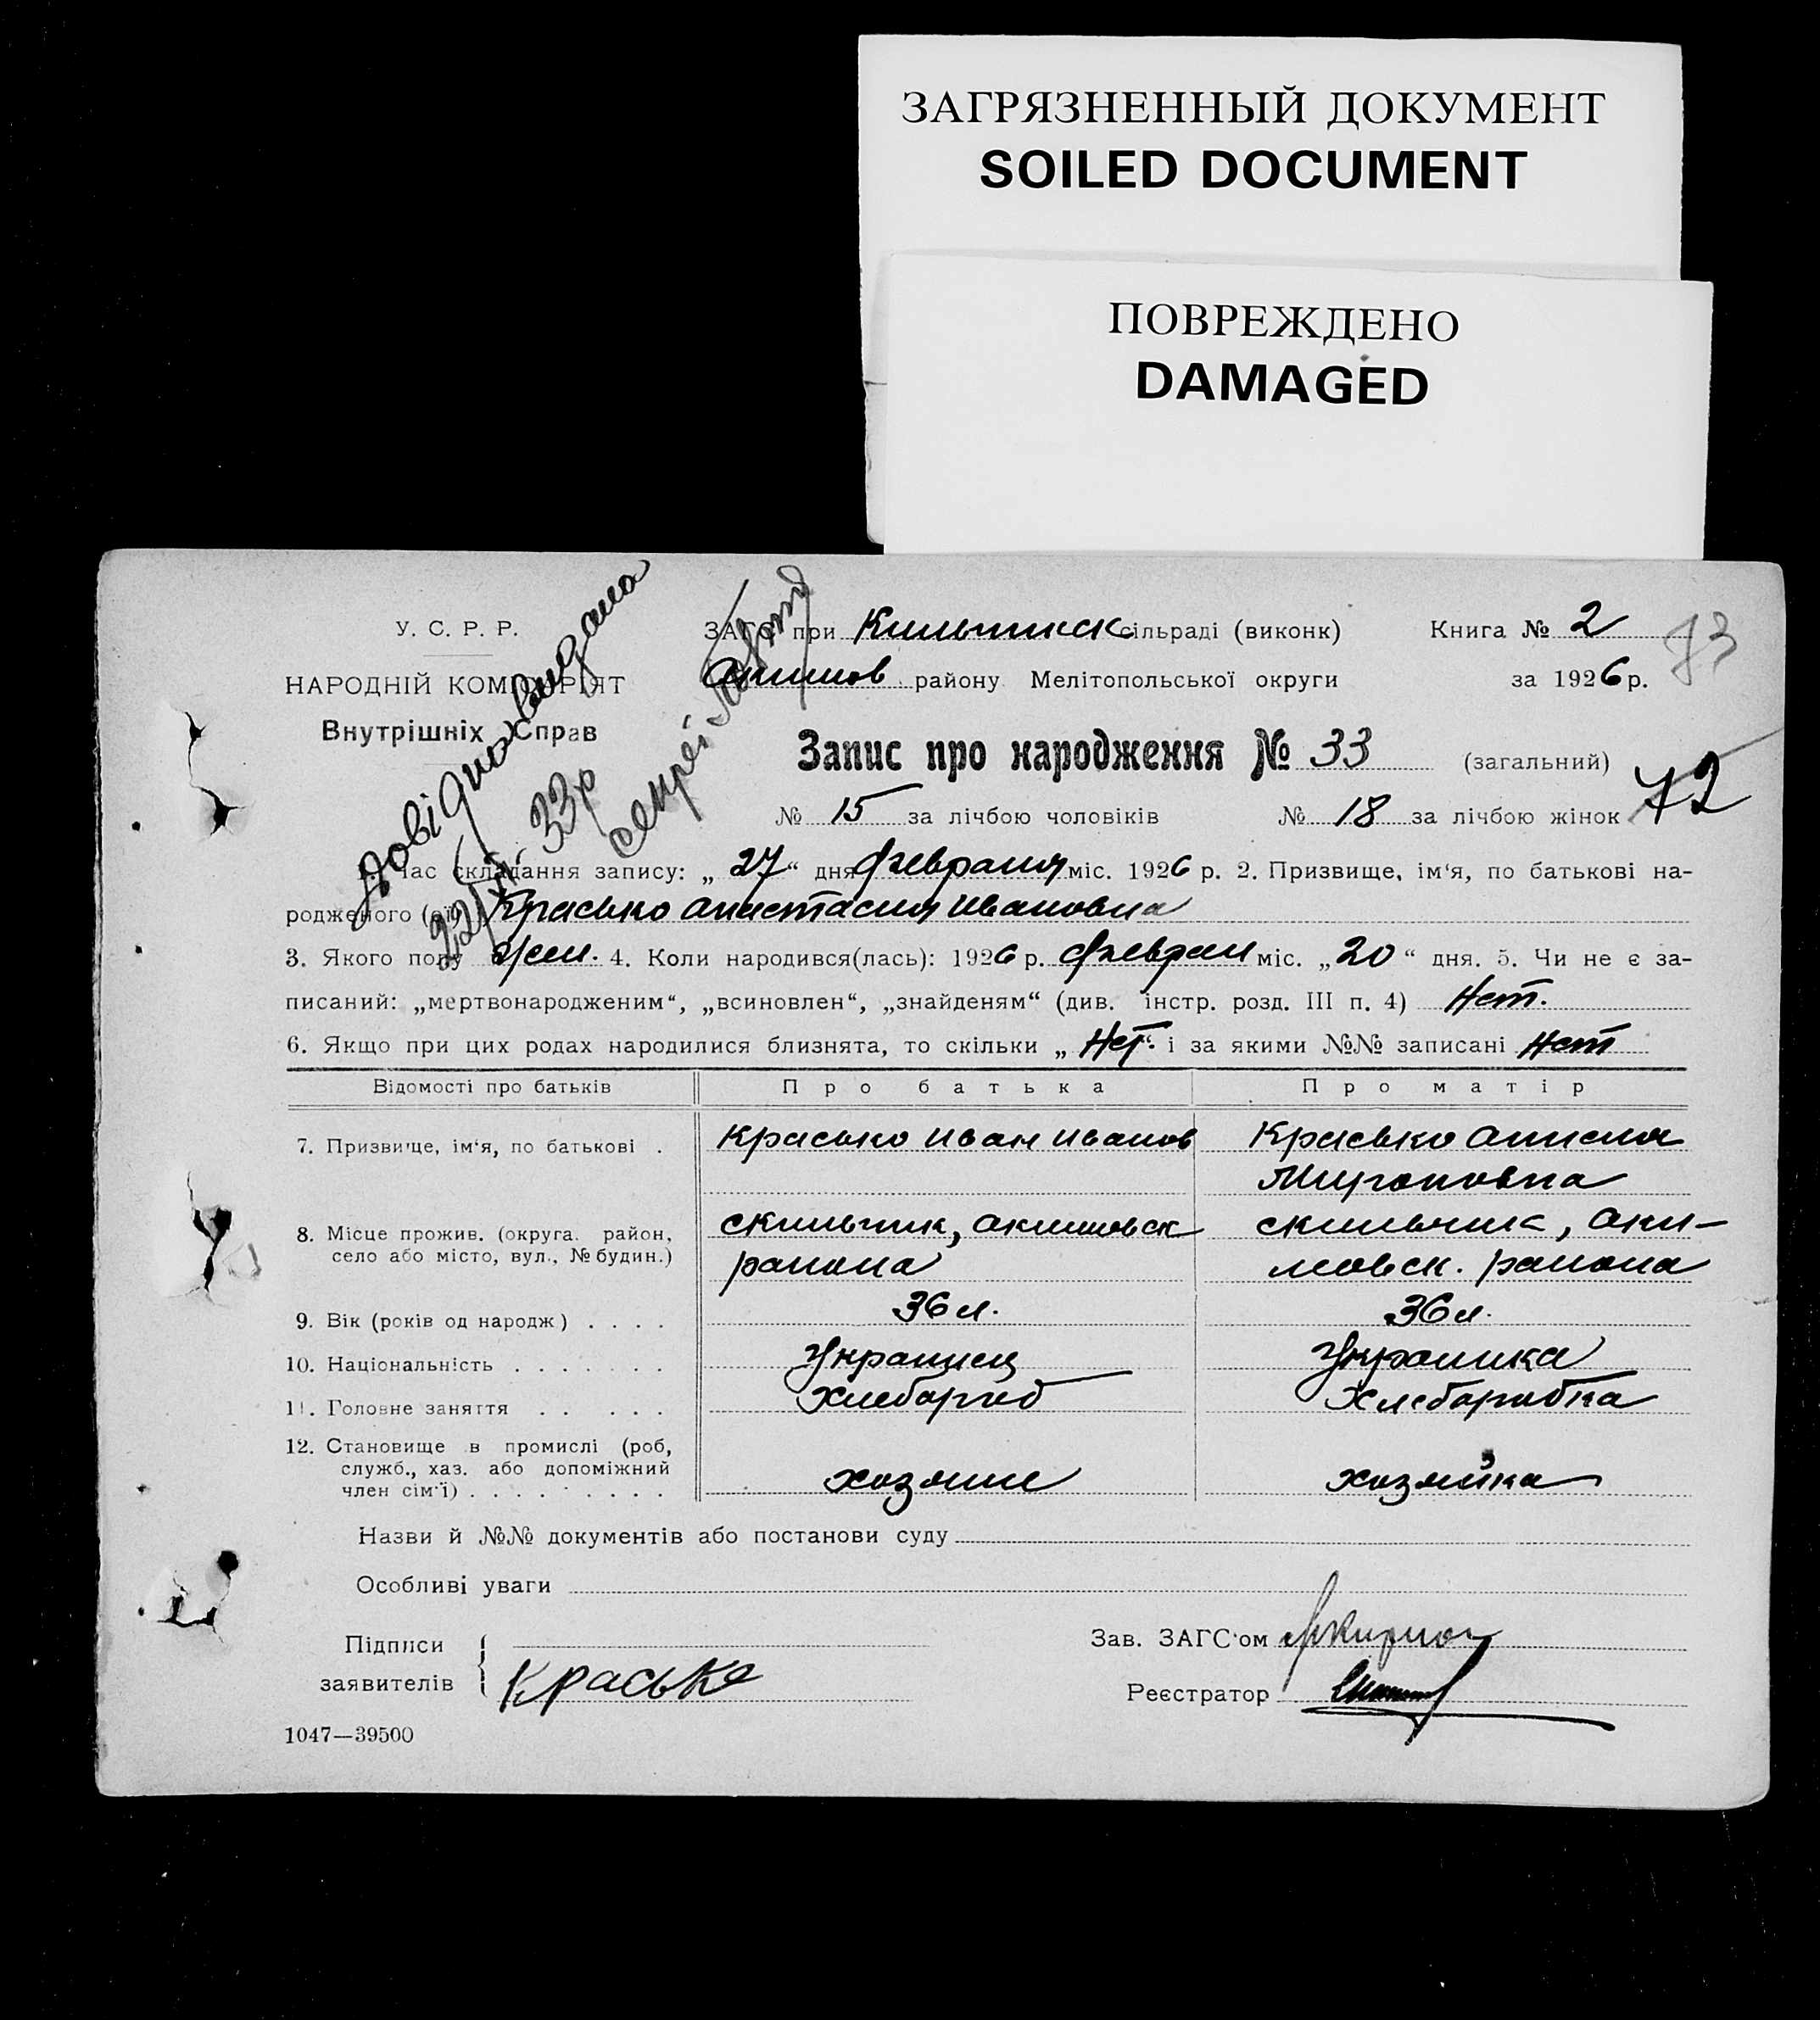 ЗАГРЯЗНЕННЫЙ ДОКУМЕНТ
SOILED DOCUMENT
ПОВРЕЖДЕНО
DAMAGED
У. С. Р. Р.
НАРОДНІЙ КОМІСАРІЯТ
Внутрішніх Справ
Довідно видана
33р
ЗАГС при Кильтиск сільраді (виконк) Книга № 2
Акимов району Мелітопольської округи за 1926 р.
73
Запис про народження № 33 (загальний)
72
№ 15 за лічбою чоловіків № 18 за лічбою жінок
1. Час складання запису: „ 27 “ дня февраля міс. 1926 р. 2. Призвище, ім‘я, по батькові на-
родженого (ої) Красько Анастасия Ивановна
3. Якого полу жен. 4. Коли народився(лась): 1926 р. феврал міс. „ 20 “ дня. 5. Чи не є за-
писаний: „мертвонародженим“, „всиновлен“, „знайденям“ (див. інстр. розд. III п. 4) Нет.
6. Якщо при цих родах народилися близнята, то скільки „ Нет “ і за якими №№ записані Нет
Відомості про батьків Про батька Про матір
7. Призвище, ім‘я, по батькові . Красько Иван Иванов Красько Анисия
Мироновна
8. Місце прожив. (округа. район, село або місто, вул., № будин.) акимовск района , аки-
мовск. района
9. Вік (років од народж) . . . . 36 л. 36 л.
10. Національність . . . . . . . Украинец Украинка
11. Головне заняття . . . . . Хлебороб Хлеборобка
12. Становище в промислі (роб, служб., хаз. або допоміжний член сім‘ї) . . . . . . . . . хозяин хозяйка
Назви й №№ документів або постанови суду
Особливі уваги
Підписи
заявителів Красько
Зав. ЗАГС‘ом
Реєстратор
1047—39500